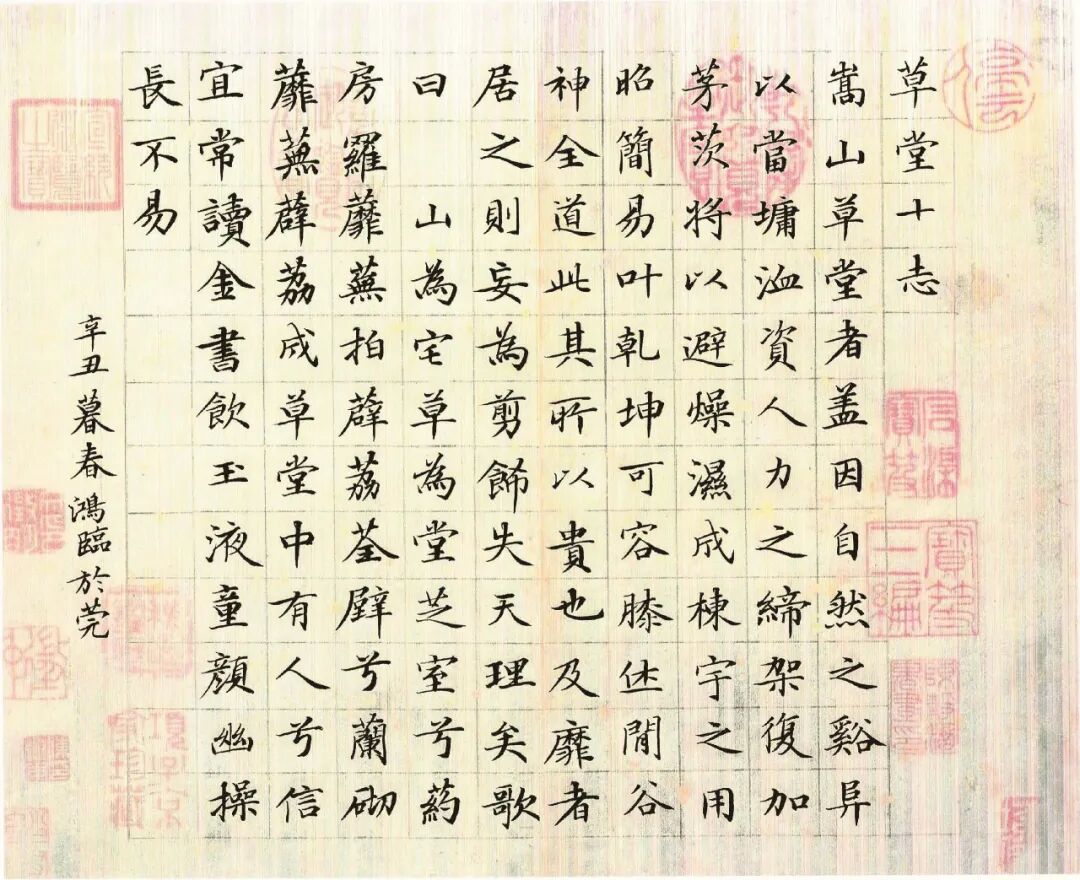 草堂十志
嵩山草堂者盖因自然之谿阜
以當墉洫資人力之締架復加
茅茨將以避燥濕成棟宇之用
昭簡易叶乾坤可容膝休閒谷
神全道此其所以貴也及靡者
居之則妄為剪飾失天理矣歌
曰山為宅草為堂芝室兮葯
房羅蘼蕪拍薜荔荃壁兮蘭砌
蘼蕪薜荔成草堂中有人兮信
宜常讀金書飲玉液童顏幽操
長不易
辛丑暮春鴻臨於莞
寶笈三編